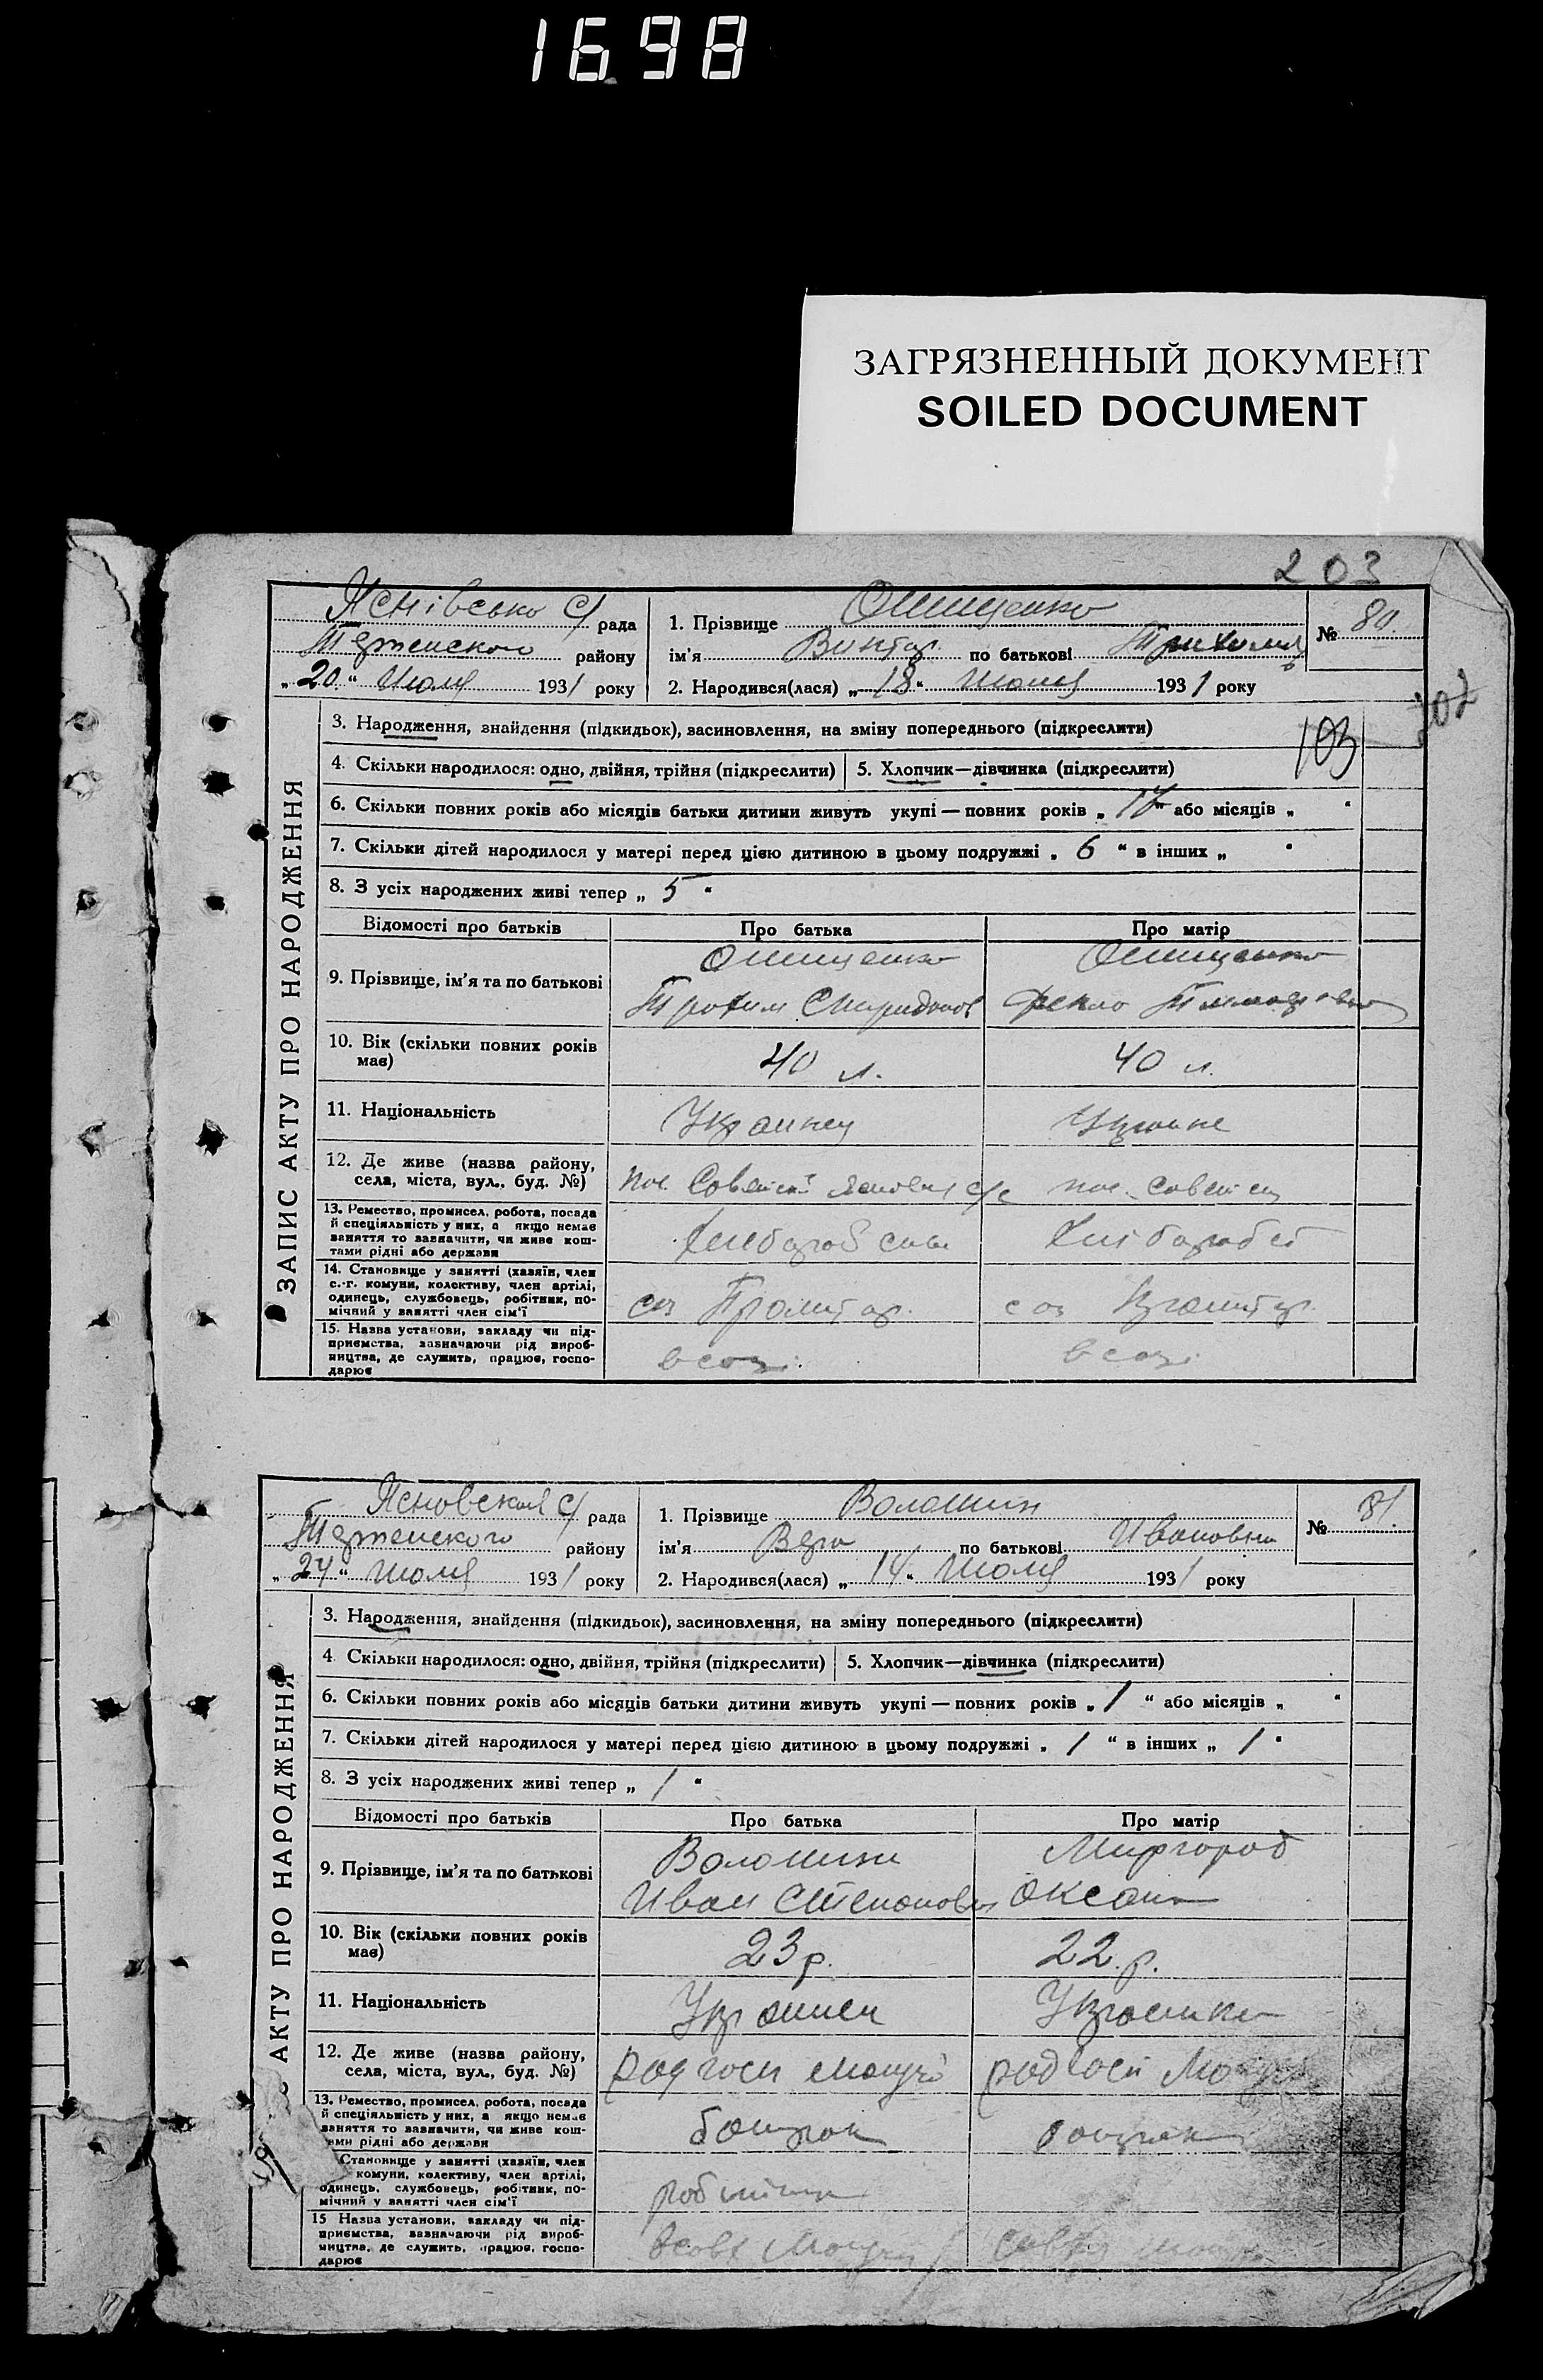 1698
ЗАГРЯЗНЕННЫЙ ДОКУМЕНТ
SOILED DOCUMENT
203
Яснівсько с/ рада
района
„20“ Июля 1931 року
1. Прізвище Онищенко
№ 80.
ім'я Виктор по батькові Трихомов
2. Народився(лася) „18“ Июля 1931 року
202
103
ЗАПИС АКТУ ПРО НАРОДЖЕННЯ
3. Народження, знайдення (підкидьок), засиновлення, на зміну попереднього (підкреслити)
4. Скільки народилося: одно, двійня, трійня (підкреслити) 5. Хлопчик—дівчинка (підкреслити)
6. Скільки повних років або місяців батьки дитини живуть укупі — повних років „17“ або місяців „ “
7. Скільки дітей народилося у матері перед цією дитиною в цьому подружжі „6“ в інших „ “
8. З усіх народжених живі тепер „5“
Відомості про батьків Про батька Про матір
9. Прізвище, ім'я та по батькові Онищенко Онищенко
Трохим Спиридонов Фекла
10. Вік (скільки повних років має) 40 л. 40 л.
11. Національність Украинец Украинка
12. Де живе (назва району, села, міста, вул., буд. №) пос. Советский с/с пос. Советск
13. Ремество, промисел, робота, посада й спеціяльність у них, а якщо немає заняття то зазначити, чи живе коштами рідні або держави
14. Становище у занятті (хазяїн, член с.-г. комуни, колективу, член артілі, одинець, службовець, робітник, помічний у занятті член сім'ї соз соз
15. Назва установи, закладу чи підприємства, зазначаючи рід виробництва, де служить, працює, господарює в созі в созі
Ясновская с/ рада
району
„24“ Июля 1931 року
1. Прізвище Волошин
№ 81.
ім'я Вера по батькові Ивановна
2. Народився(лася) „14“ Июля 1931 року
АКТУ ПРО НАРОДЖЕННЯ
3. Народження, знайдення (підкидьок), засиновлення, на зміну попереднього (підкреслити)
4. Скільки народилося: одно, двійня, трійня (підкреслити) 5. Хлопчик—дівчинка (підкреслити)
6. Скільки повних років або місяців батьки дитини живуть укупі — повних років „1“ або місяців „ “
7. Скільки дітей народилося у матері перед цією дитиною в цьому подружжі „1“ в інших „1“
8. З усіх народжених живі тепер „1“
Відомості про батьків Про батька Про матір
9. Прізвище, ім'я та по батькові Волошин Миргород
Иван Степанович Оксана
10. Вік (скільки повних років має) 23 р. 22 р.
11. Національність Украинец Украинка
12. Де живе (назва району, села, міста, вул., буд. №)
13. Ремество, промисел, робота, посада й спеціяльність у них, а якщо немає заняття то зазначити, чи живе коштами рідні або держави
Становище у занятті (хазяїн, член комуни, колективу, член артілі, одинець, службовець, робітник, помічний у занятті член сім'ї
15 Назва установи, закладу чи підприємства, зазначаючи рід виробництва, де служить, працює, господарює